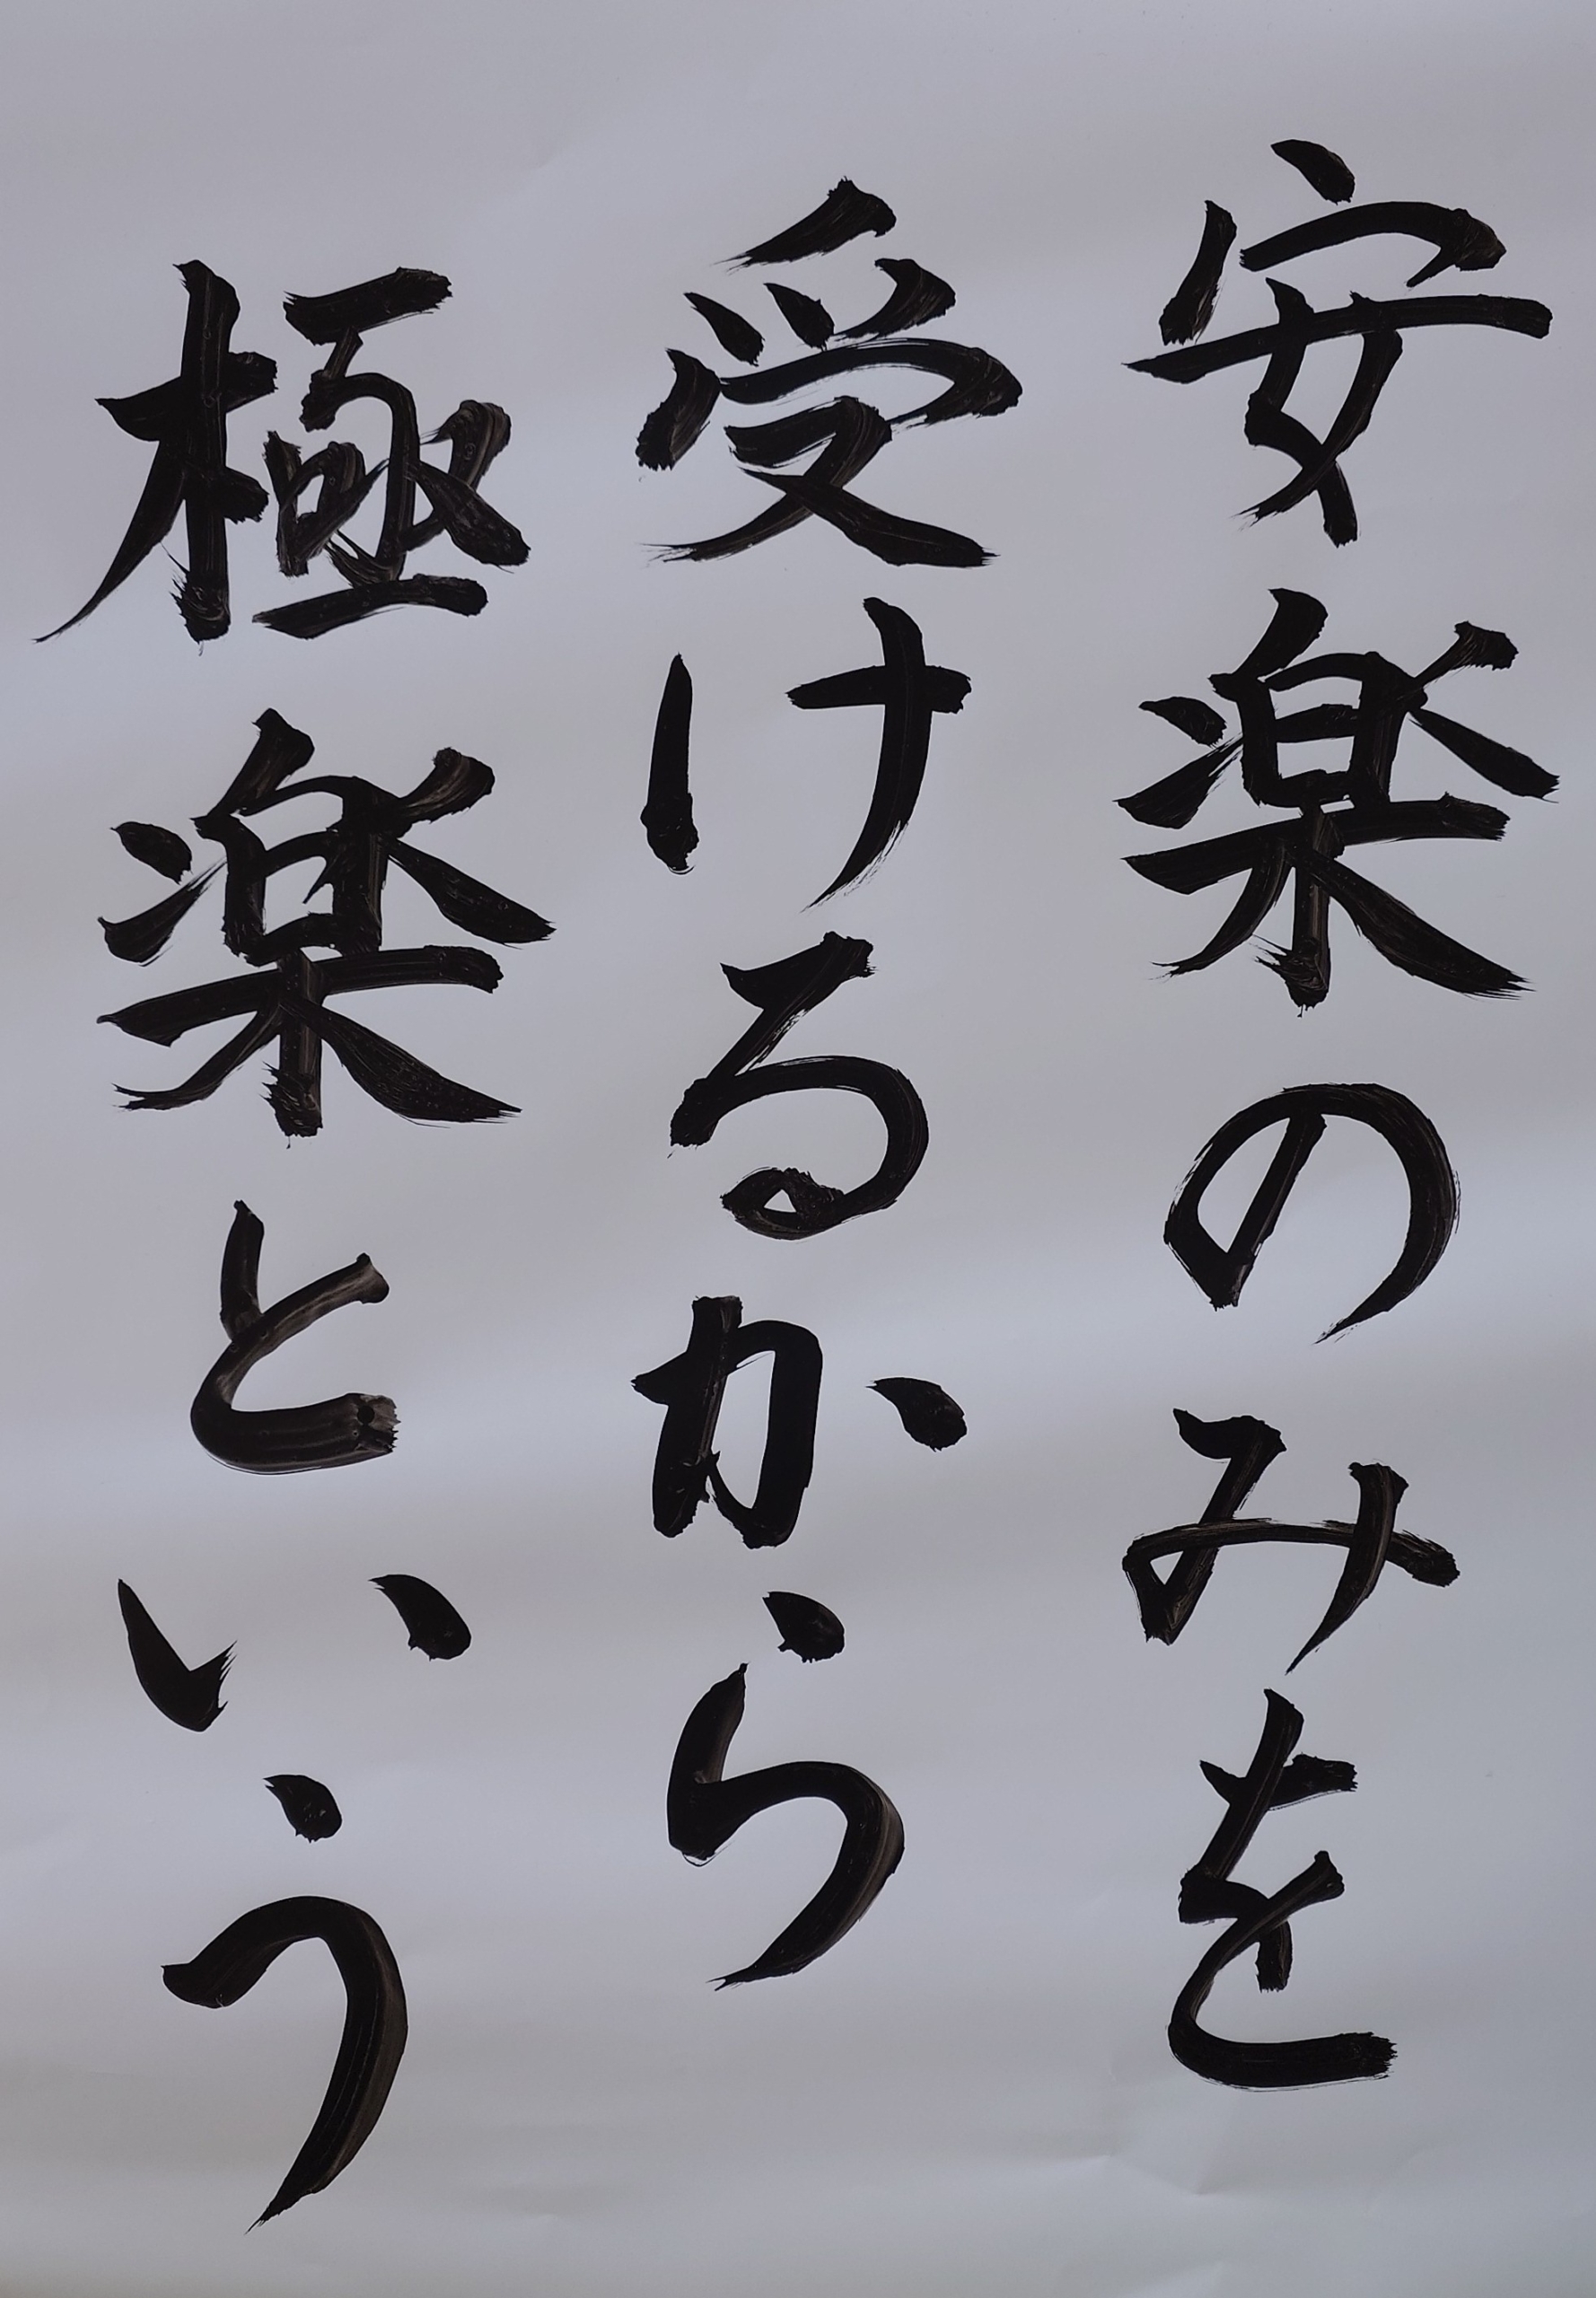 安楽のみを
受けるから
極楽という